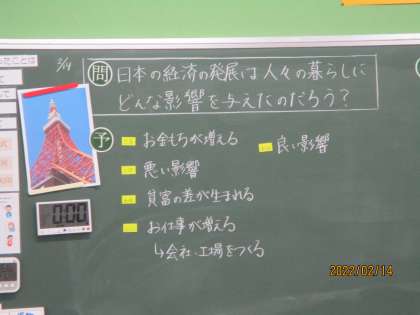 ったことは
て
して
2/14
問
日本の経済の発展は人々の暮らしに
どんな影響を与えたのだろう？
予
お金もちが増える
良い影響
悪い影響
貧富の差が生まれる
お仕事が増える
↳会社、工場をつくる
0:00
2022/02/14